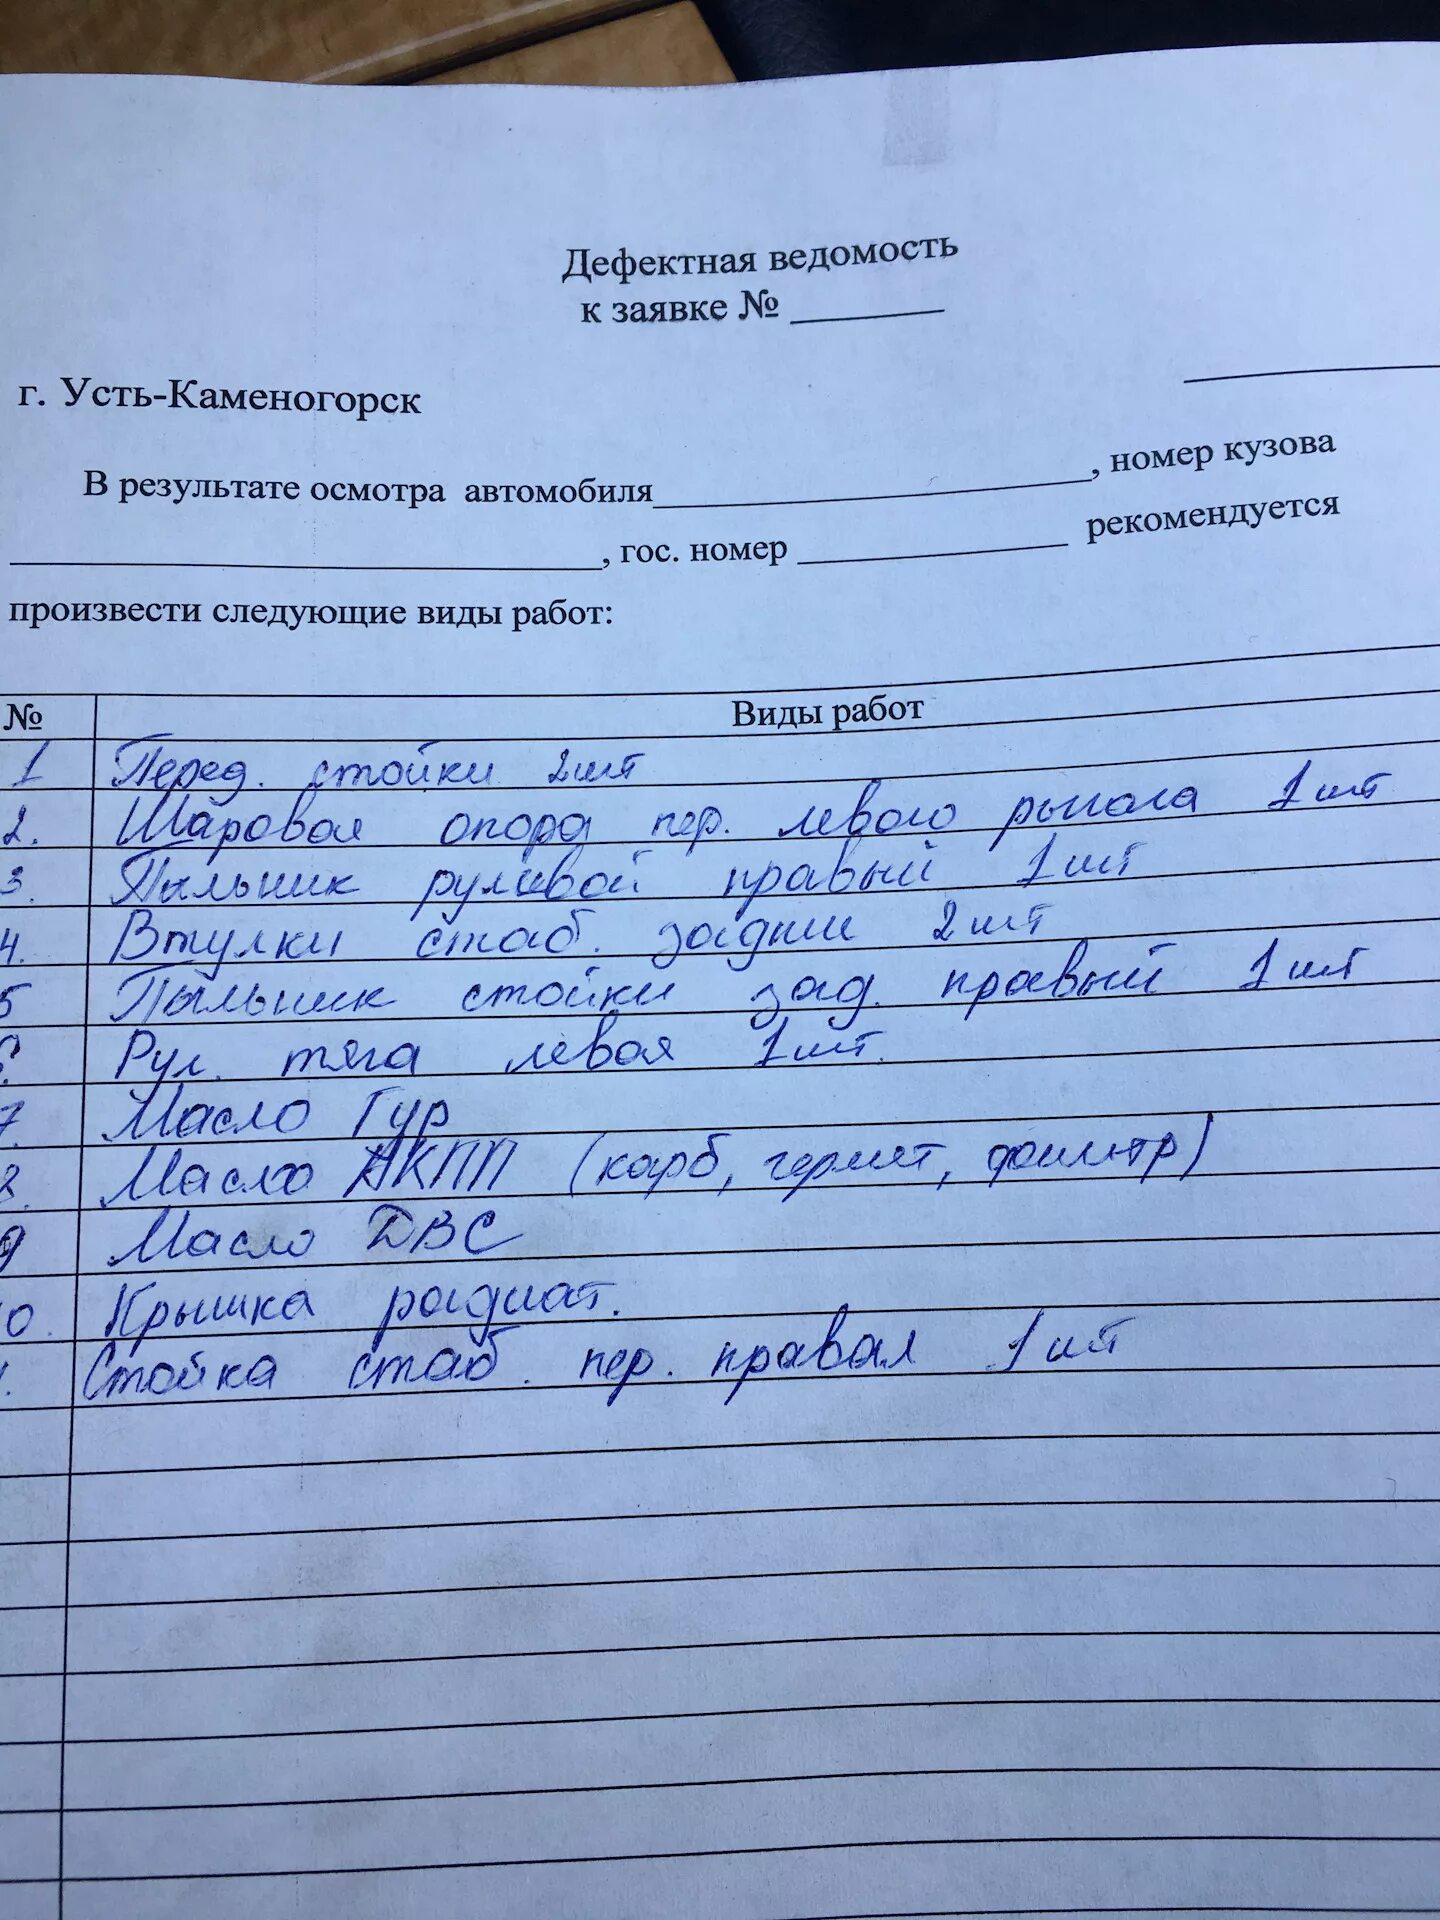 Дефектная ведомость
к заявке № ________
г. Усть-Каменогорск
В результате осмотра автомобиля____________________, номер кузова
____________________, гос. номер ____________ рекомендуется
произвести следующие виды работ:
№ Виды работ
1 Перед. стойки 2шт
2. Шаровая опора пер. левого рычага 1шт
3. Пыльник рулевой правый 1шт
4. Втулки стаб. задние 2шт
5 Пыльник стойки зад. правый 1шт
6. Рул. тяга левая 1шт.
7. Масло Гур
8. Масло АКПП (карб, гермет, фильтр)
9 Масло ДВС
10. Крышка радиат.
1. Стойка стаб. пер. правая 1шт